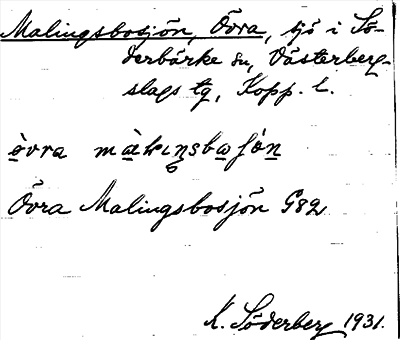 Malingsbosjön, Övra, sjö i Sö-
derbärke sn, Västerberg-
slags tg, Kopp. l.
Övra Malingsbosjön G82
K. Söderberg 1931.